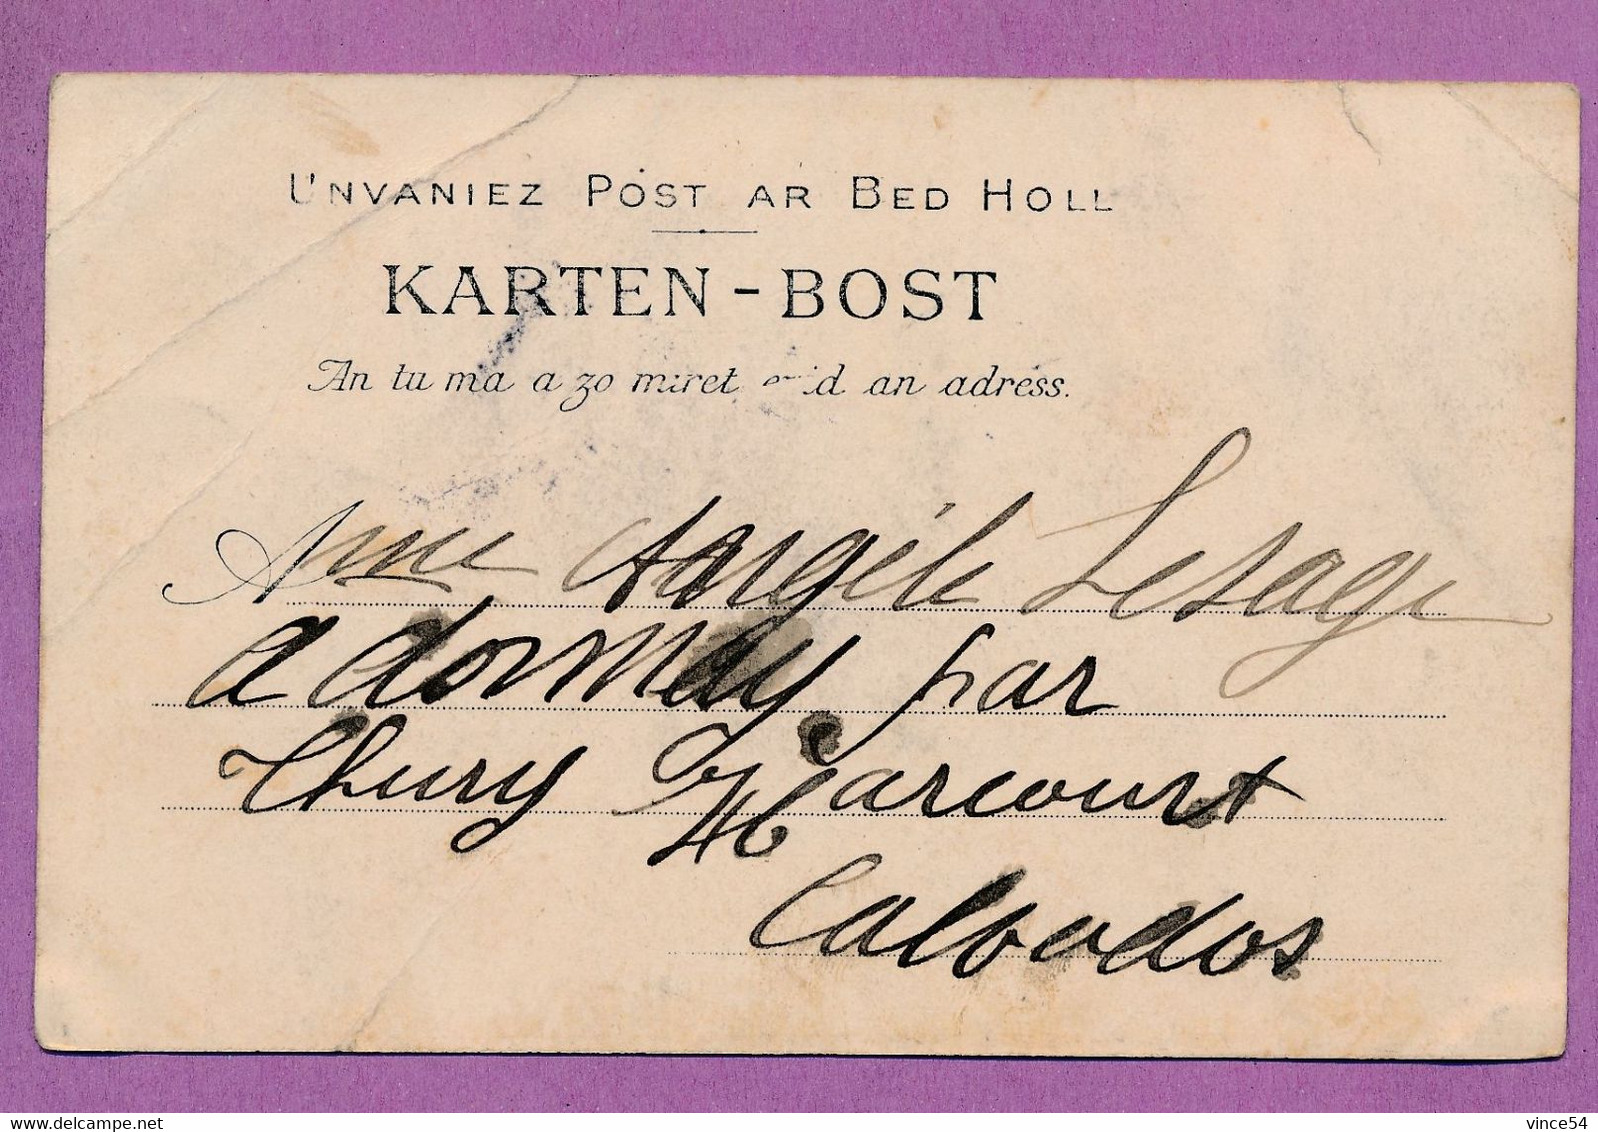 UNVANIEZ POST AR BED HOLL
KARTEN-BOST
An tu ma a zo miret evid an adress.
Mme Angèle Lesage
a dormay par
Thury Harcourt
Calvados
www.delcampe.net
vince54